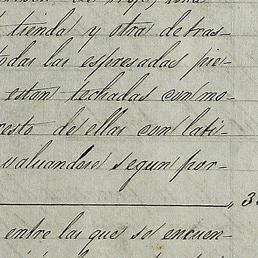 tienda y otra detras-
todas las espresadas pie-
estan techadas con mo-
resto de ellas con lati-
valuandose segun por-
entre las que se encuen-